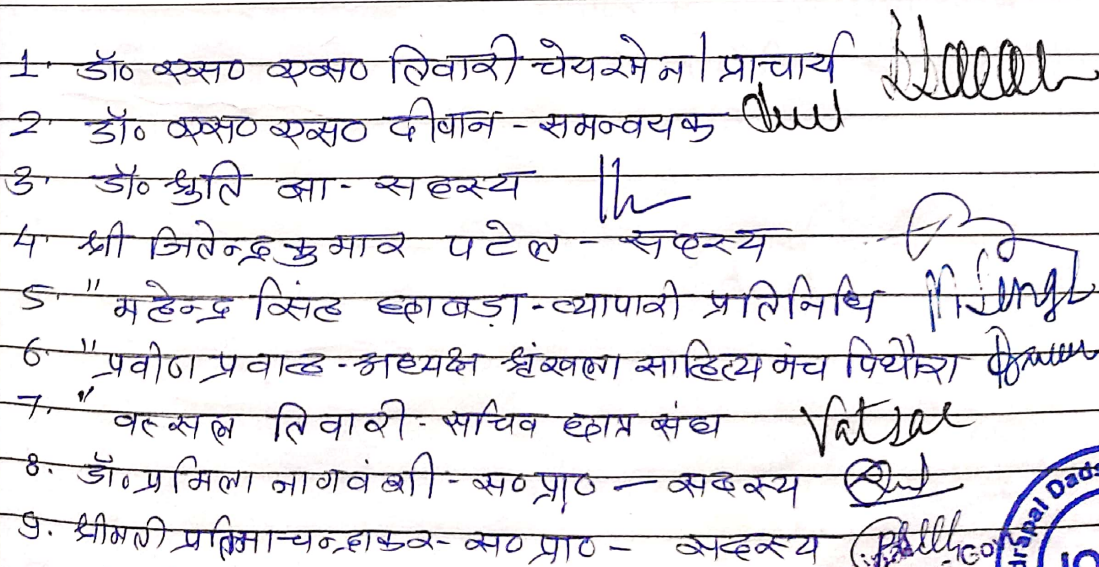 1. डॉ० एस० एस० तिवारी चेयरमेन / प्राचार्य
2. डॉ० एस० एस० दीवान - समन्वयक
3. डॉ० श्रुति झा - सदस्य
4. श्री जितेन्द्र कुमार पटेल - सदस्य
5. " महेन्द्र सिंह छाबड़ा - व्यापारी प्रतिनिधि
6. " प्रवीण प्रवाह - अध्यक्ष श्रृंखला साहित्य मंच पिथौरा
7. " वत्सल तिवारी - सचिव छात्र संघ Vatsal
8. डॉ. प्रमिला नागवंशी - स० प्रा० - सदस्य
9. श्रीमती प्रतिमा चन्द्राकर - स० प्रा० - सदस्य